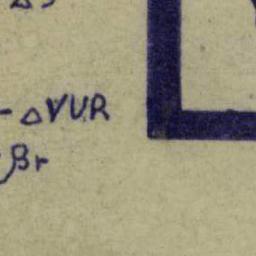 - △VUR
βr